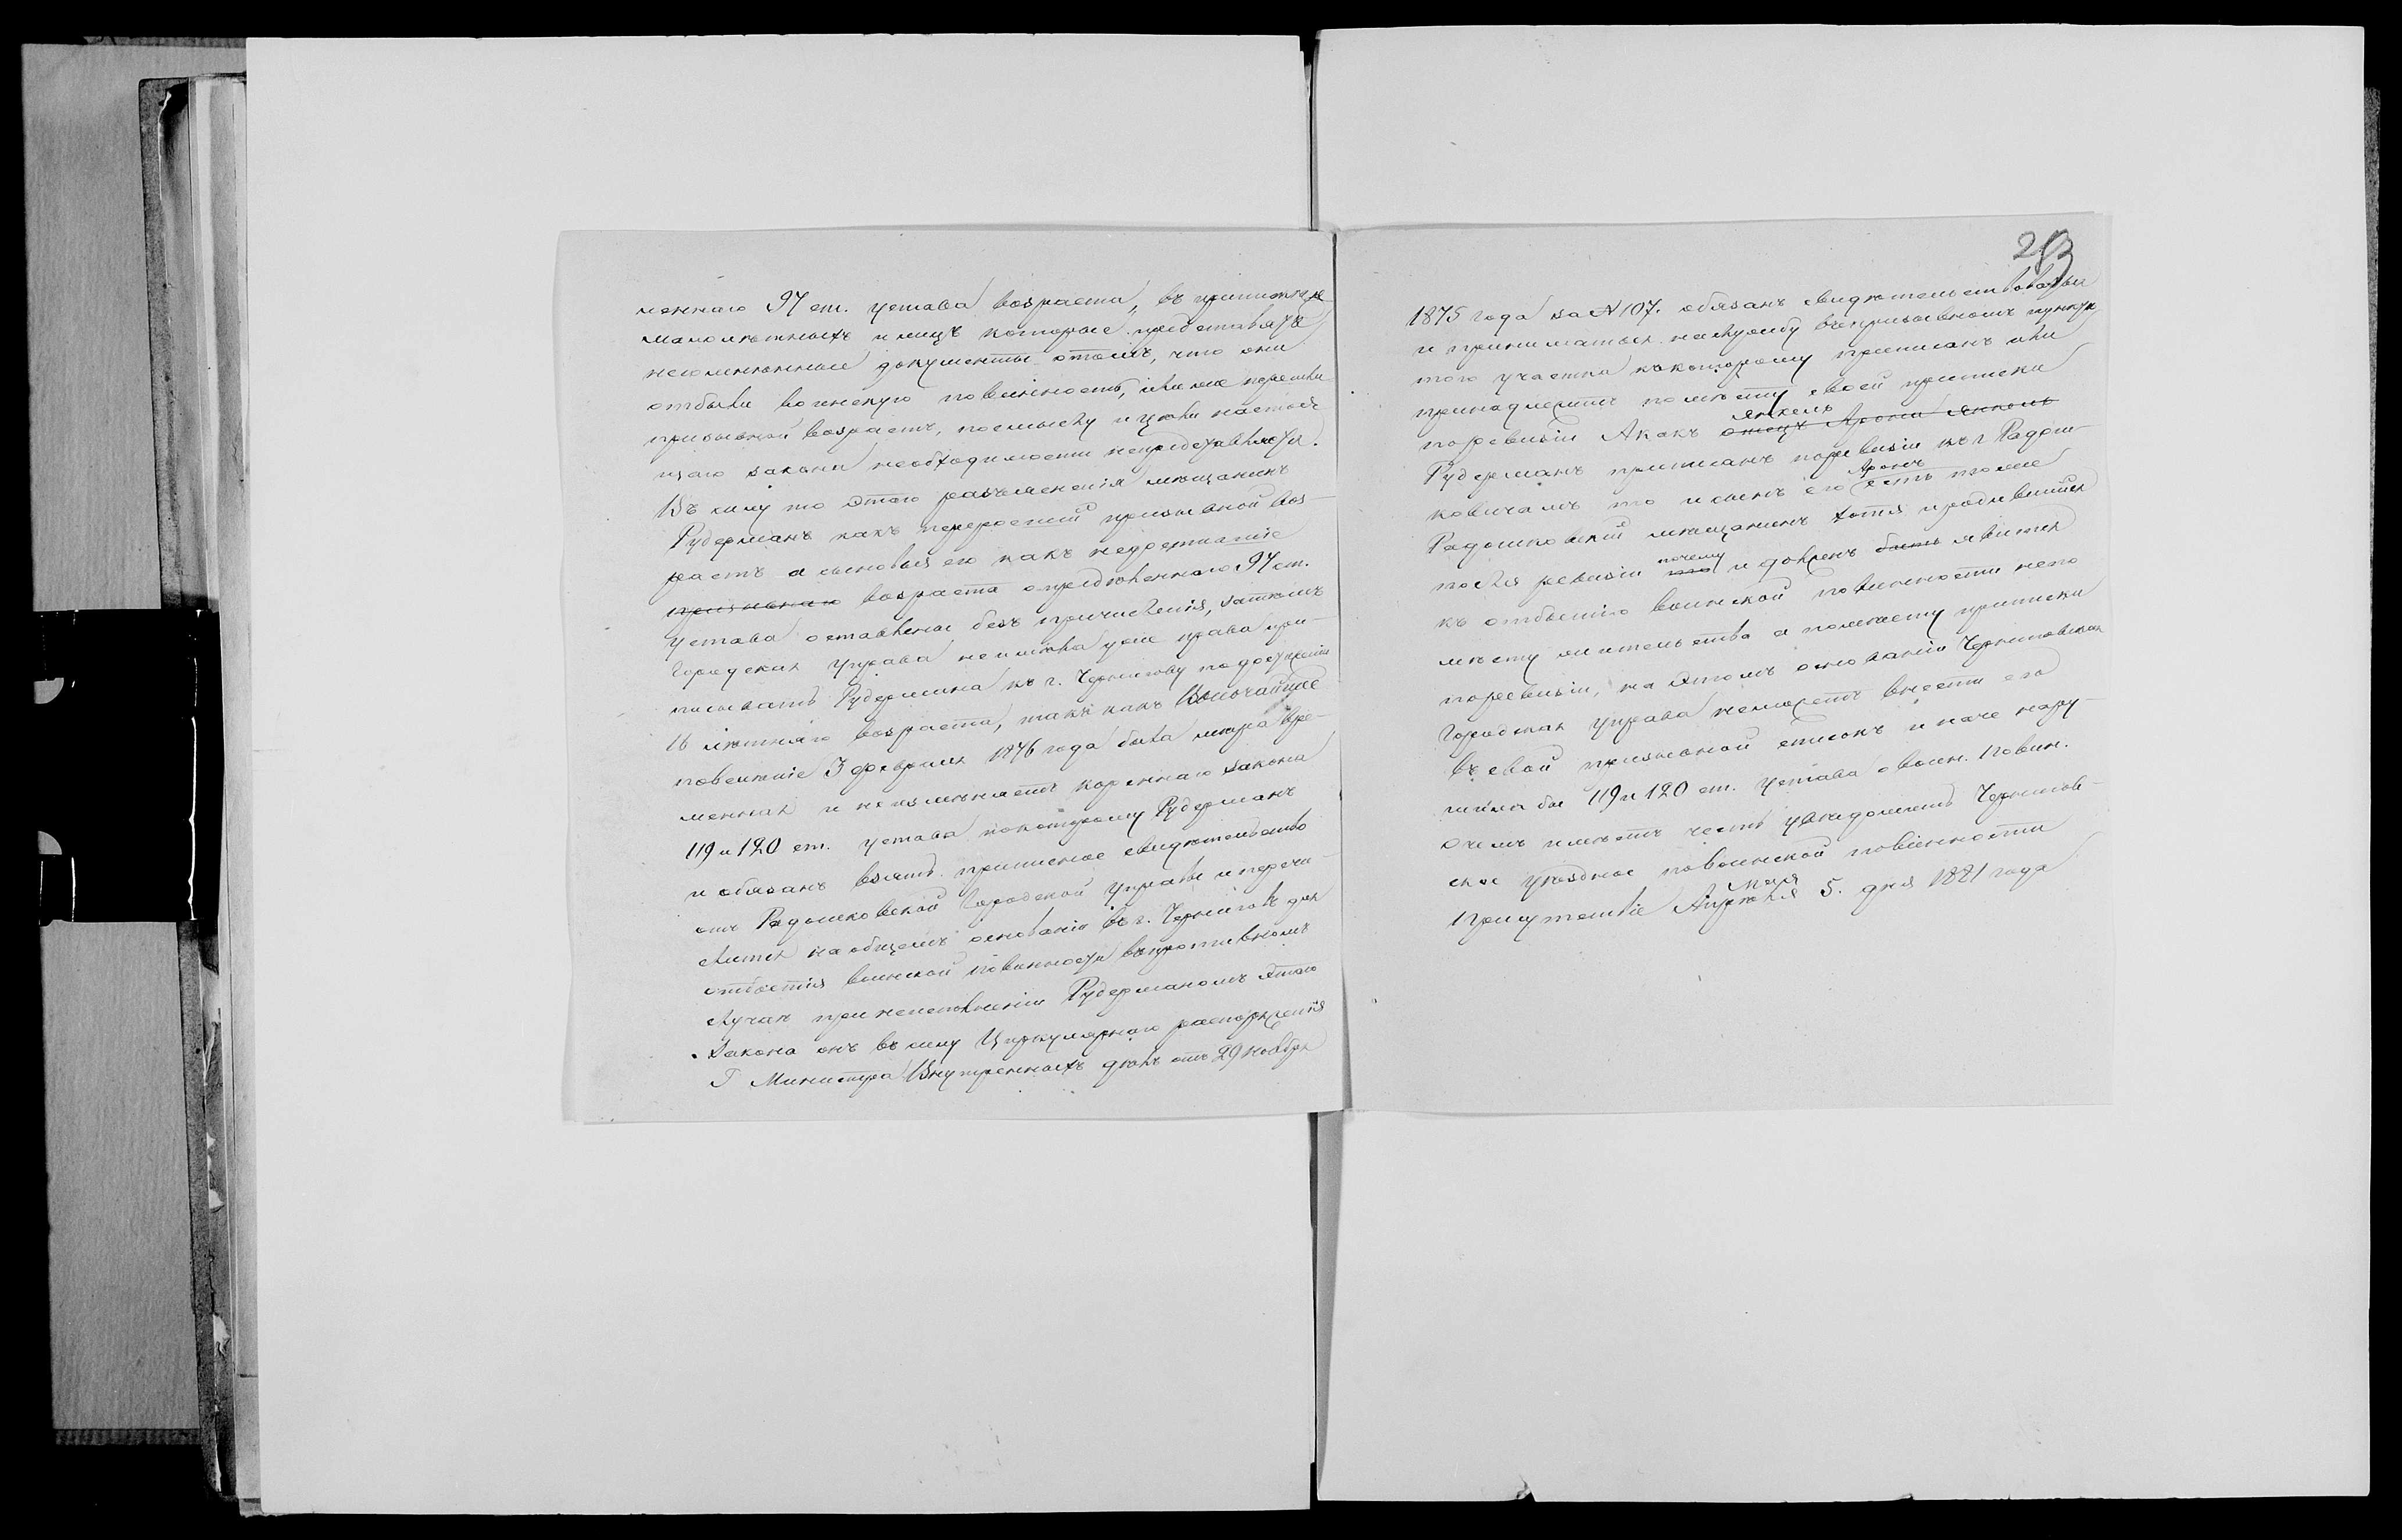 меннаго 97 ст. устава возраста, въ припискѣ же
малолѣтныхъ и лицъ которые представятъ
несомнѣнные документы отомъ, что они
отбыли воинскую повинность, или же перешли
призывной возрастъ, посмыслу и цѣли настоя
щаго закона необходимости непредставляется.
Въ силу то этого разъясненія мѣщанинъ
Рудерманъ какъ переросшій призывной воз-
растъ а сыновья его какъ недостигшіе
призывнаго возраста опредѣленнаго 97 ст.
устава оставлены безъ причисленія, затѣмъ
Городская Управа неимѣла уже права при-
писывать Рудермана къ г. Чернигову подостиженіи
16 лѣтняго возраста, такъ какъ Высочайшее
повелѣніе 3 февраля 1876 года была мѣра вре-
менная и неизмѣняетъ кореннаго закона
119 и 120 ст. устава покоторому Рудерманъ
и обязанъ взять приписное свидѣтельство
отъ Радошковской Городской Управы и перечи-
слится наобщемъ основаніи въ г. Черниговъ для
отбытія воинской повинности въпротивномъ
случаѣ принеисполненіи Рудерманомъ этого
закона онъ въ силу Циркулярнаго распоряженія
Г Министра Внутреннихъ дѣлъ отъ 29 ноября
1875 года за № 107. обязанъ свидѣтельствоваться
и приниматься наслужбу въпризывномъ пунктѣ
того участка къкоторому приписанъ или
принадлежитъ помѣсту своей приписки
янкель
поревизіи Акакъ отецъ Арона янкель
Рудерманъ приписанъ поревизіи къ г Радош-
Аронъ
ковичамъ то и сынъ его есть тоже
Радошковскій мѣщанинъ хотя и родившійся
почему
послѣ ревизіи то и долженъ быть явится
къ отбытію воинской повинности непо
мѣсту жительства а помѣсту приписки
поревизіи, на этомъ основаніи Черниговская
Городская Управа неможетъ внести его
въ свой призывной списокъ иначе нару-
шила бы 119 и 120 ст. Устава о воин. Повин.
Очемъ имѣетъ честь увѣдомить Чернигов-
ское уѣздное повоинской повинности
Мая
Присутствіе Апрѣля 5. дня 1881 года